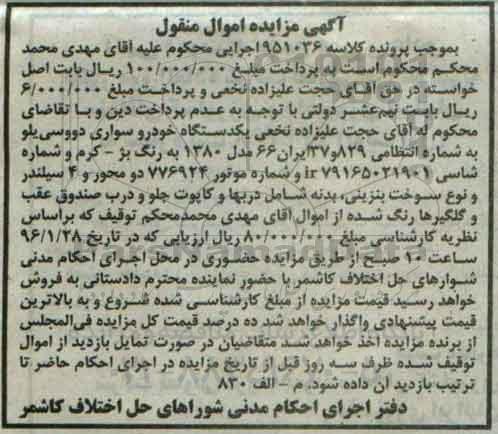 آگهی مزایده اموال منقول
بموجب پرونده کلاسه ۹۵۱۰۳۶ اجرایی محکوم علیه آقای مهدی محمد
محکم محکوم است به پرداخت مبلغ ۱۰۰/۰۰۰/۰۰۰ ریال بابت اصل
خواسته در حق آقای حجت علیزاده نخعی و پرداخت مبلغ ۶/۰۰۰/۰۰۰
ریال بابت نیم‌عشر دولتی با توجه به عدم پرداخت دین و با تقاضای
محکوم له آقای حجت علیزاده نخعی یکدستگاه خودرو سواری دووسی‌یلو
به شماره انتظامی ۸۲۹و۳۷ایران۶۶ مدل ۱۳۸۰ به رنگ بژ - کرم و شماره
شاسی ir ۷۹۱۶۵۰۲۱۹۰۱ و شماره موتور ۷۷۶۹۲۴ دو محور و ۴ سیلندر
و نوع سوخت بنزینی، بدنه شامل دربها و کاپوت جلو و درب صندوق عقب
و گلگیرها رنگ شده از اموال آقای مهدی محمدمحکم توقیف که براساس
نظریه کارشناسی مبلغ ۸۰/۰۰۰/۰۰۰ ریال ارزیابی که در تاریخ ۹۶/۱/۲۸
ساعت ۱۰ صبح از طریق مزایده حضوری در محل اجرای احکام مدنی
شوراهای حل اختلاف کاشمر با حضور نماینده محترم دادستانی به فروش
خواهد رسید قیمت مزایده از مبلغ کارشناسی شده شروع و به بالاترین
قیمت پیشنهادی واگذار خواهد شد ده درصد قیمت کل مزایده فی‌المجلس
از برنده مزایده اخذ خواهد شد متقاضیان در صورت تمایل بازدید از اموال
توقیف شده ظرف سه روز قبل از تاریخ مزایده در اجرای احکام حاضر تا
ترتیب بازدید آن داده شود. م - الف ۸۳۰
دفتر اجرای احکام مدنی شوراهای حل اختلاف کاشمر